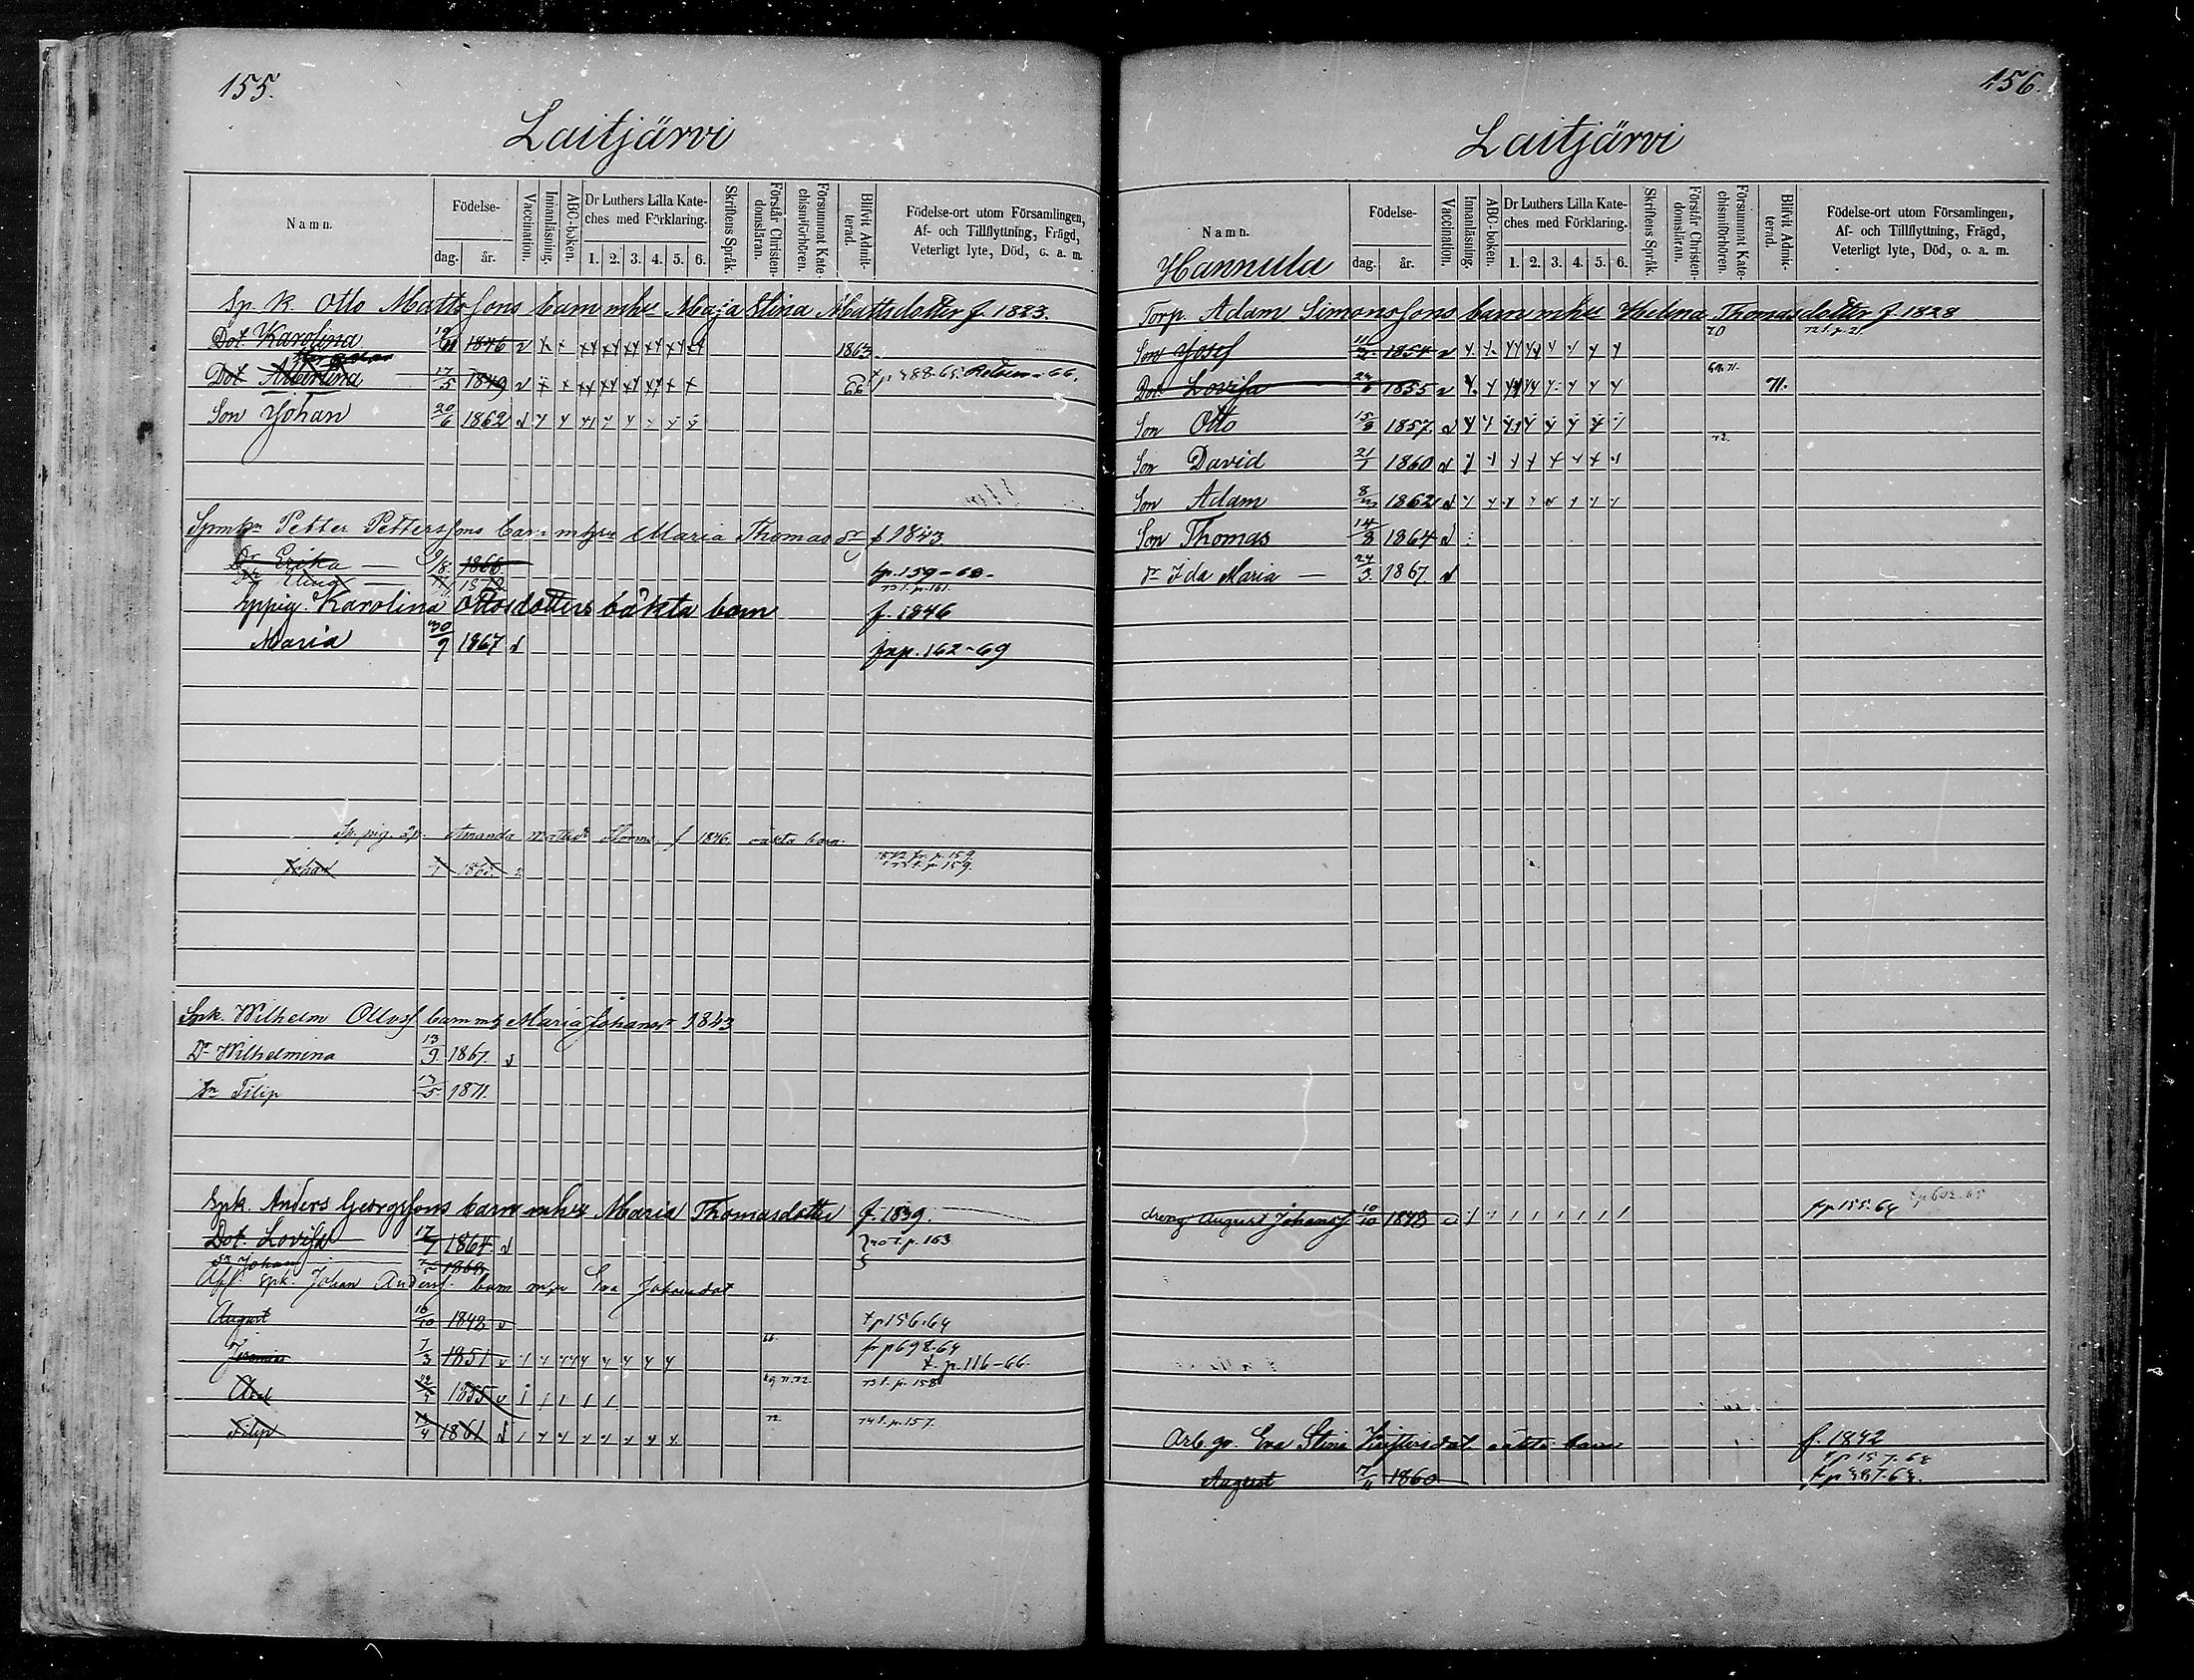 155.
Laitjärvi
Namn.
Födelse-
dag.
år.
Vaccination.
Innanläsning.
ABC-boken.
Dr Luthers Lilla Kate-
ches med Förklaring.
1. 2. 3. 4. 5. 6.
Skriftens Språk.
Förstår Christen-
domsläran.
Försummat Kate-
chismiförhören.
Blifvit Admit-
terad.
Födelse-ort utom Församlingen,
Af- och Tillflyttning, Frägd,
Veterligt lyte, Död, o. a. m.
Sp. k. Otto Mattssons barn mhu Maja Stina Mattsdotter f. 1823.
Dot. Karolina 1846 v 1863.
Dot Albertina 17/5 1849 v 66
Son Johan 20/6 1862 v
Petter Petterssons barn m hu Maria Thomas dr f 1843.
Dr Erika 9/8 1866. tp. 159-68-
73 t. p. 161.
Karolina Ottosdotters oäkta barn f. 1846
Maria 30/9 1867 v frp. 162-69
Sp. pig. Amanda f 1846. oäkta barn.
Johan 1872 fr. p. 159.
73 t. p. 159.
Spk. Wilhelm Ottoss barn m h Maria Johansdr 1843
Dr Wilhelmina 13/9 1867. v
Sn Filip 17/5 1871.
Spk. Anders Georgssons barn mhu Maria Thomasdotter f. 1839.
Dot. Lovisa 17/7 1864 v 70 t. p. 163
Sn Johan 1868
Afl. spk. Johan Anderss. barn m hu Eva Johansdot
August 10/10 1848 v t p 156.64
Jeremias 7/3 1851 v 66. fr p 698.64
t. p. 116-66.
Axel 1855 v 69 71. 72. 73 t. p. 158
Filip 1861 v 72. 74 t. p. 157.
156.
Laitjärvi
Namn.
Hannula
Födelse-
dag.
år.
Vaccination.
Innanläsning.
ABC-boken.
Dr Luthers Lilla Kate-
ches med Förklaring.
1. 2. 3. 4. 5. 6.
Skriftens Språk.
Förstår Christen-
domsläran.
Försummat Kate-
chismiförhören.
Blifvit Admit-
terad.
Födelse-ort utom Församlingen,
Af- och Tillflyttning, Frägd,
Veterligt lyte, Död, o. a. m.
Torp. Adam Simonssons barn mhu Helena Thomasdotter f. 1828
Son Josef 11/3 1854 v 70
Dot. Lovisa 1855 v 69. 71. 71.
Son Otto 1857. v
Son David 21/1 1860 v 72.
Son Adam 1862 v
Son Thomas 14/8 1864 v
dr Ida Maria 24/3 1867 v
dreng August Johanss 10/10 1848 v fr p 155.64
Arb. qv. Eva Stina oäkta barn f. 1842
August 1860